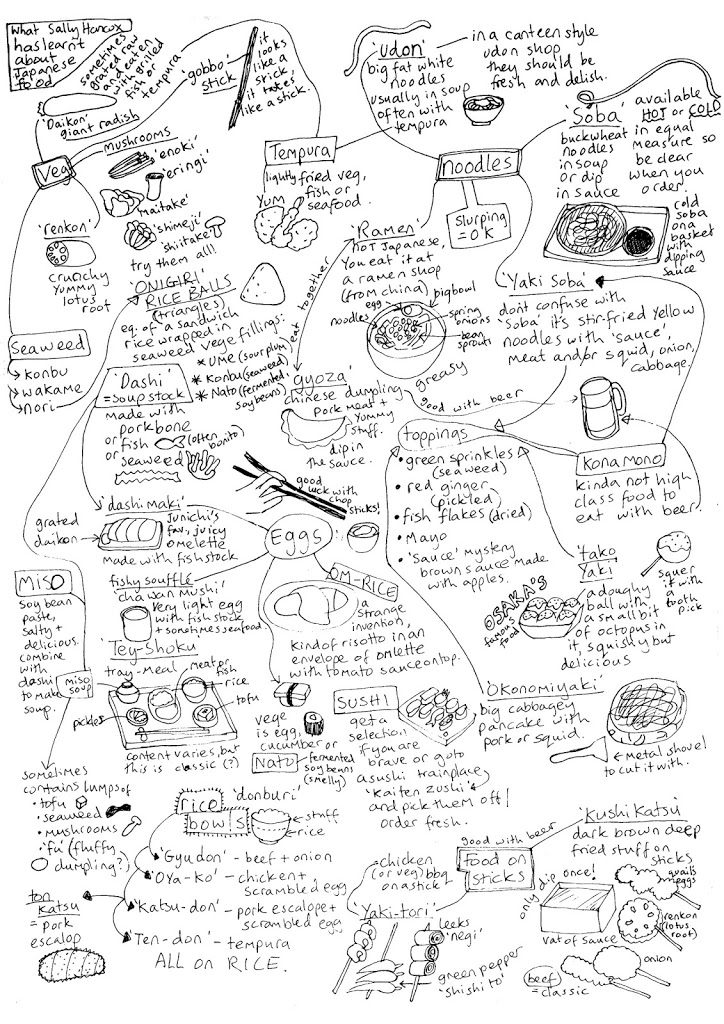 What Sally Hancox
has learnt
about
Japanese
food
sometimes
grated raw
and eaten
with grilled
fish or
tempura
'Daikon'
giant radish
'gobbo'
stick
it
looks
like a
stick,
it tastes
like a stick.
Veg
mushrooms
'enoki'
'eringi'
'maitake'
'shimeji'
'shiitake'
try them all!
'renkon'
crunchy
yummy
lotus
root
Seaweed
konbu
wakame
nori
'udon'
big fat white
noodles
usually in soup
often with
tempura
in a canteen style
udon shop
they should be
fresh and delish.
Tempura
lightly fried veg,
fish or
seafood.
YUM
noodles
Slurping
= OK
'Soba'
buckwheat
noodles
in soup
or dip
in sauce
available
HOT or COLD
in equal
measure so
be clear
when you
order.
cold
soba
on a
basket
with
dipping
sauce
'Ramen'
not Japanese,
you eat it at
a ramen shop
(from china)
big bowl
egg
noodles
spring
onions
bean
sprouts
eat together
greasy
'ONIGIRI'
RICE BALLS
(triangles)
eq. of a sandwich
rice wrapped in
seaweed vege fillings:
* Ume (sour plum)
* Konbu (seaweed)
* Nato (fermented,
soy beans)
'Yaki Soba'
dont confuse with
'Soba' it's stir-fried yellow
noodles with 'sauce',
meat and/or squid, onion,
cabbage.
'Dashi'
= soup stock
made with
pork bone
or fish
(often
bonito)
seaweed
'gyoza'
chinese dumpling
pork meat +
yummy
stuff.
dip in
the sauce.
good with beer
toppings
• green sprinkles
(seaweed)
• red ginger
(pickled)
• fish flakes (dried)
• Mayo
• 'Sauce' mystery
brown sauce made
with apples.
Konamono
kinda not high
class food to
eat with beer
good
luck with
chop
sticks!
'dashi maki'
grated
daikon
Junichi's
fav, juicy
omelette
made with fish stock
Eggs
fishy soufflé
'chawan mushi'
very light egg
with fish stock
+ sometimes seafood.
OM-RICE
a
strange
invention,
kind of risotto in an
envelope of omlette
with tomato sauce on top.
OSAKA'S
famous
food
'tako
yaki'
a doughy
ball with
a small bit
of octopus in
it, squishy but
delicious
squer
it with
a
tooth
pick
MISO
soy bean
paste,
salty +
delicious.
combine
with
dashi
to make
soup.
miso
soup
'Tey-Shoku'
tray-meal
meat or
fish
rice
tofu
pickles
content varies, but
this is classic (?)
sometimes
contains lumps of
• tofu
• seaweed
• mushrooms
• 'fu' (fluffy
dumpling?)
vege
is egg,
cucumber or
NATO
fermented
soy beans
(smelly)
SUSHI
get a
selection
if you are
brave or go to
a sushi train place
'Kaiten zushi'
and pick them off/
order fresh.
'Okonomiyaki'
big cabbagey
pancake with
pork or squid.
← metal shovel
to cut it with.
rice
bowls
'donburi'
stuff
rice
'Gyudon' - beef + onion
'Oya-ko' - chicken +
scrambled egg
'Katsu-don' - pork escalope +
scrambled egg
'Ten-don' - tempura
ALL ON RICE.
ton
katsu
= pork
escalop
good with beer
food on
sticks
chicken
(or veg) bbq
on a stick
'Yaki-tori'
leeks
'negi'
green pepper
'shishito'
'Kushi Katsu'
dark brown deep
fried stuff on
sticks
only dip once!
vat of sauce
quails
eggs
renkon
(lotus
root)
onion
beef
= classic